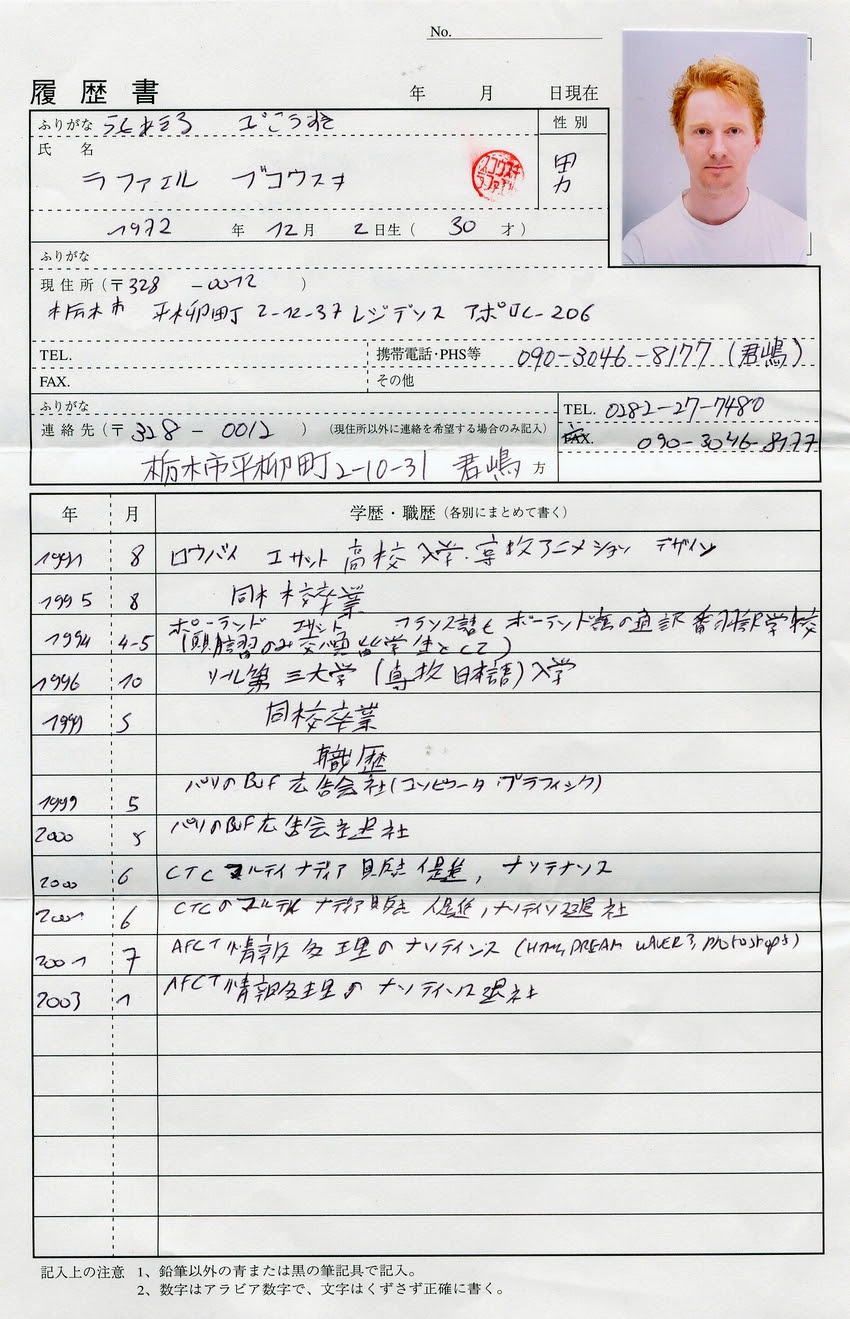 No.
履歴書 年 月 日現在
ふりがな
性別
氏名
ラファエル ブコウスキ
男
1972 年 12月 2日生( 30 才)
ふりがな
現住所(〒328 -0012 )
栃木市 平柳町 2-12-37 レジデンス アポロC-206
TEL. 携帯電話・PHS等 090-3046-8177 (君嶋)
FAX. その他
ふりがな TEL. 0282-27-7480
連絡先(〒328 - 0012 ) (現住所以外に連絡を希望する場合のみ記入) FAX. 090-3046-8177
栃木市平柳町2-10-31 君嶋 方
年 月 学歴・職歴(各別にまとめて書く)
1991 8 ロウバイ エサット 高校 入学・専攻アニメション デザイン
1995 8 同 校卒業
ポーランド エサット フランス語と ポーランド語の通訳 学校
1994 4-5 のみ交 留学生として)
1996 10 リール第三大学 (専攻 日本語) 入学
1999 5 同校卒業
職歴
1999 5 パリのBUF 広告会社(コンピュータ グラフィック)
2000 5 パリのBUF広告会 退社
2000 6 CTC マルティメディア 促進, メンテナンス
2001 6 CTCのマルティメディア 促進, 退社
2001 7 AFCT 情報 の メンテインス (HTML, DREAM WAVER3, photoshop5)
2003 1 AFCT 情報 の メンテインス退社
記入上の注意 1、鉛筆以外の青または黒の筆記具で記入。
2、数字はアラビア数字で、文字はくずさず正確に書く。